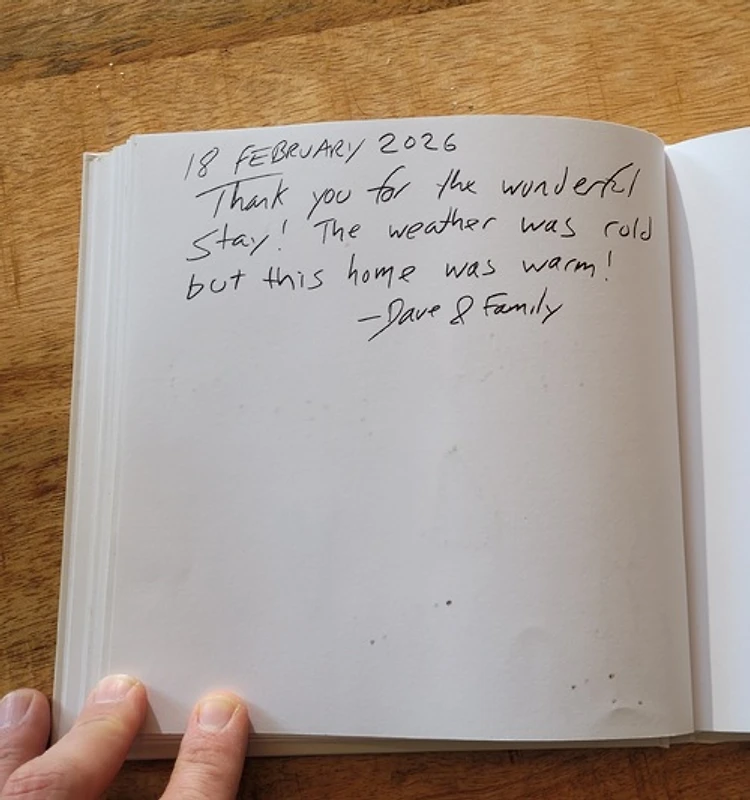 18 FEBRUARY 2026
Thank you for the wonderful
Stay! The weather was cold
but this home was warm!
—Dave & Family